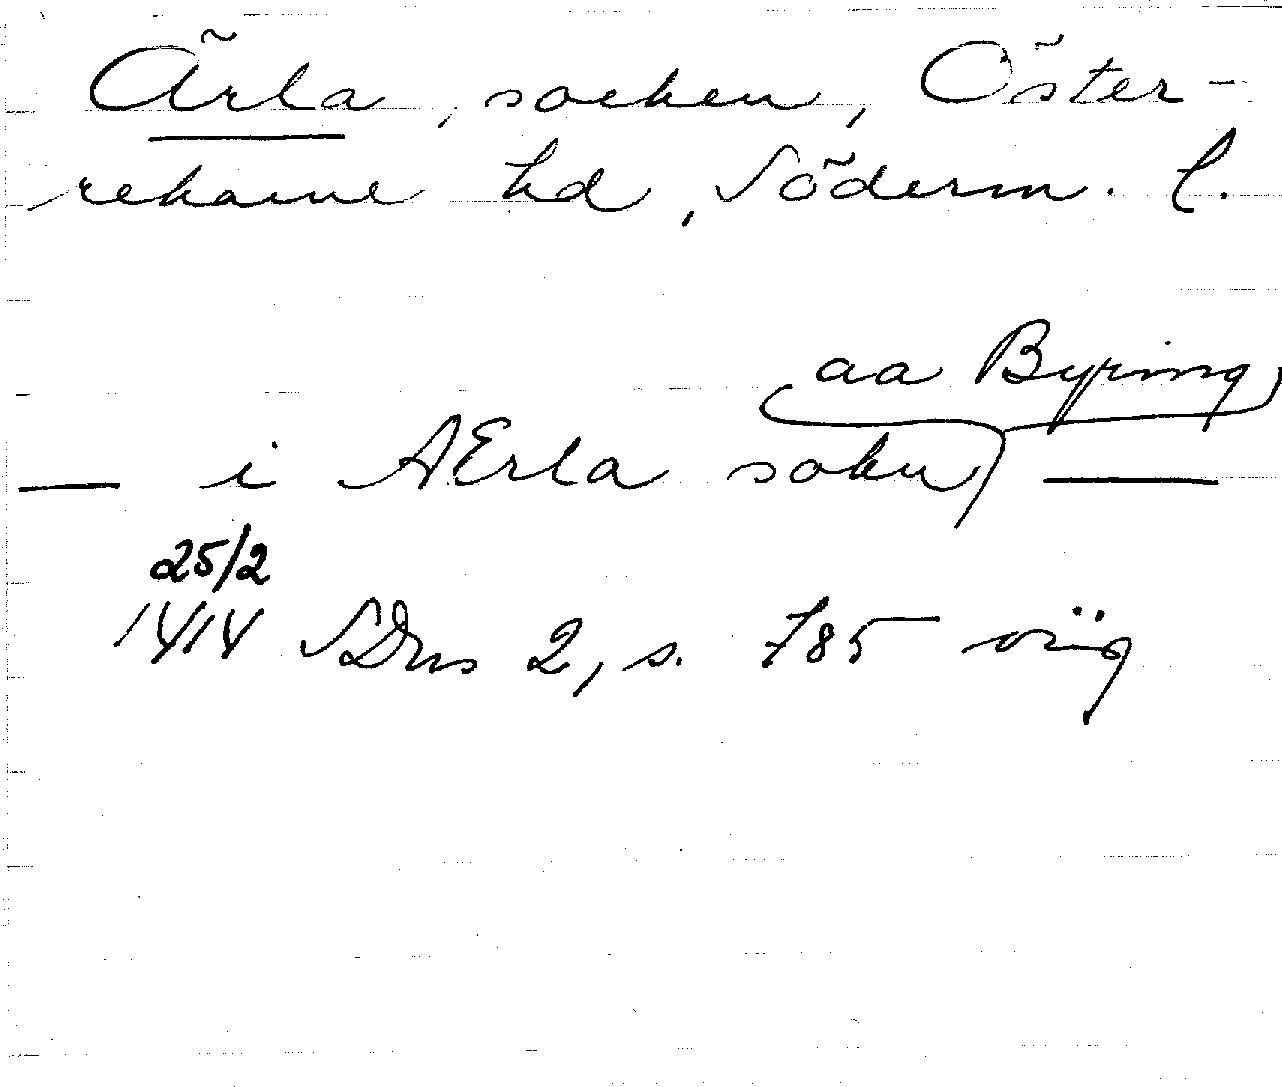 Ärla, socken, Öster-
rekarne hd, Söderm. l.
aa Byring
— i AErla sokn —
25/2
1414 SDns 2, s. 785 orig